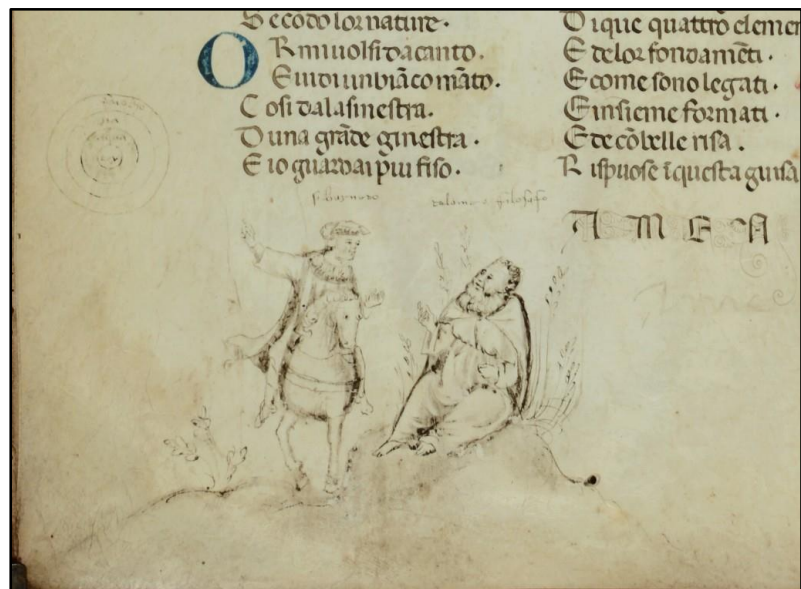 S ecōdo lor nature·
O R mi uolsi da canto·
E uidi un biāco māto·
C osi dala sinestra·
D una grāde ginestra·
E io guardai p̄iu fiso·
D i que quattro elemen
E de lor fondamēti·
E come sono legati·
E insieme formati·
E de cō belle risa·
R ispuose ī questa guisa
filosafo
A M E N